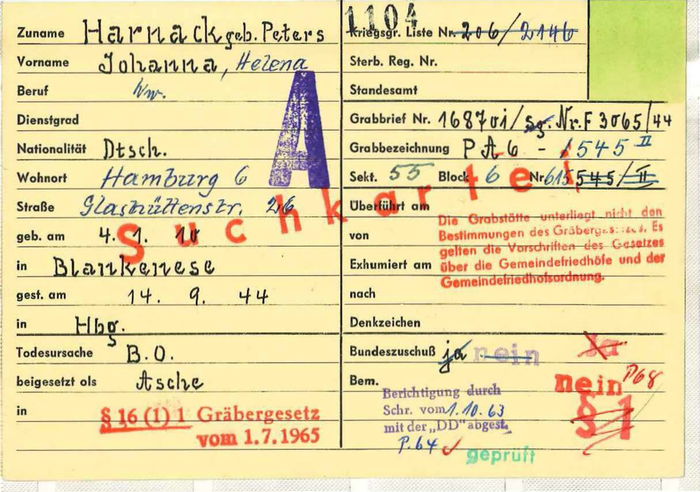 Zuname Harnack geb. Peters
Vorname Johanna, Helena
Beruf Ww.
Dienstgrad
Nationalität Dtsch.
Wohnort Hamburg 6
Straße Glashüttenstr. 26
geb. am 4. 1. 10
in Blankenese
gest. am 14. 9. 44
in Hbg.
Todesursache B.O.
beigesetzt als Asche
in
§ 16 (1) 1 Gräbergesetz
vom 1.7.1965
A
Suchkartei
1104
Kriegsgr. Liste Nr. 206/2146
Sterb. Reg. Nr.
Standesamt
Grabbrief Nr. 1687oi/sg. Nr. F 3065/44
Grabbezeichnung PA6 - 1545 II
Sekt. 55 Block 6 Nr 615 545/II
Überführt am
von
Exhumiert am
nach
Die Grabstätte unterliegt nicht den
Bestimmungen des Gräbergesetzes. Es
gelten die Vorschriften des Gesetzes
über die Gemeindefriedhöfe und der
Gemeindefriedhofsordnung.
Denkzeichen
Bundeszuschuß ja nein Ja
Bem. nein P68
§ 1
Berichtigung durch
Schr. vom 1.10.63
mit der „DD" abgest.
P.64
geprüft